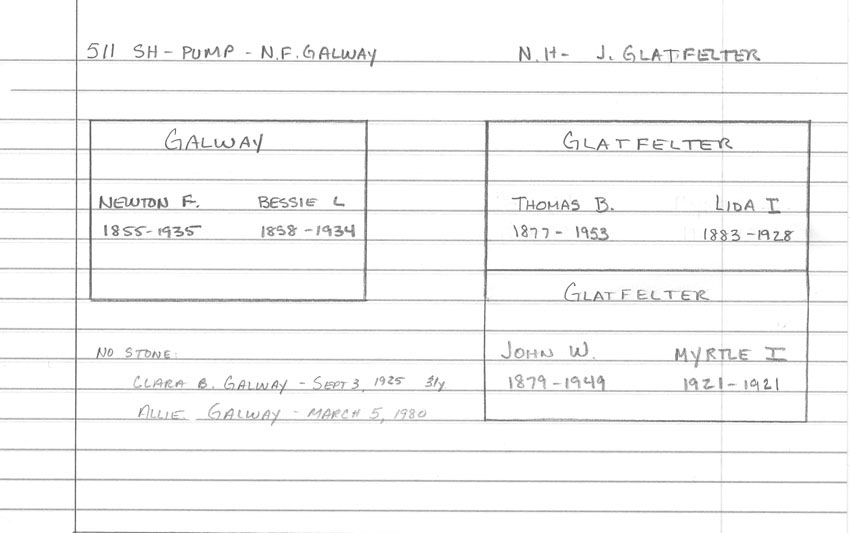 511 SH - PUMP - N.F. GALWAY N.H- J. GLATFELTER
GALWAY
NEWTON F. BESSIE L
1855-1935 1858-1934
NO STONE:
CLARA B. GALWAY - SEPT 3, 1925
ALLIE GALWAY - MARCH 5, 1980
GLATFELTER
THOMAS B. LIDA I
1877- 1953 1883-1928
GLATFELTER
JOHN W. MYRTLE I
1879-1949 1921-1921